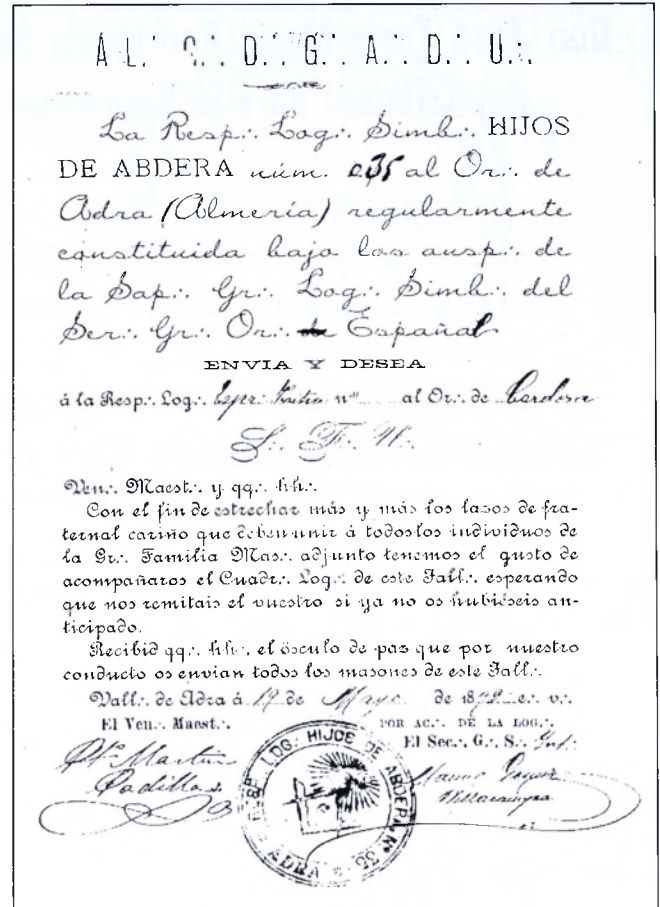 A L.·. G.·. D.·. G.·. A.·. D.·. U.·.
La Resp.·. Log.·. Simb.·. HIJOS
DE ABDERA núm. 35 al Or.·. de
Adra (Almería) regularmente
constituida bajo los ausp.·. de
la Sap.·. Gr.·. Log.·. Simb.·. del
Ser.·. Gr.·. Or.·. de Español
ENVIA Y DESEA
á la Resp.·. Log.·. nº al Or.·. de
S.·. F.·. U.·.
Ven.·. Maest.·. y qq.·. hh.·.
Con el fin de estrechar más y más los lazos de fra-
ternal cariño que deben unir á todos los individuos de
la Gr.·. Familia Mas.·. adjunto tenemos el gusto de
acompañaros el Cuadr.·. Log.·. de este Tall.·. esperando
que nos remitais el vuestro si ya no os hubiéseis an-
ticipado.
Recibid qq.·. hh.·. el ósculo de paz que por nuestro
conducto os envian todos los masones de este Tall.·.
Vall.·. de Adra á 19 de Mayo de 1892 e.·. v.·.
El Ven.·. Maest.·. POR AC.·. DE LA LOG.·.
El Sec.·. G.·. S.·.
Martin
Padilla
Villacampa
RESP. LOG. HIJOS DE ABDERA Nº 35
ADRA